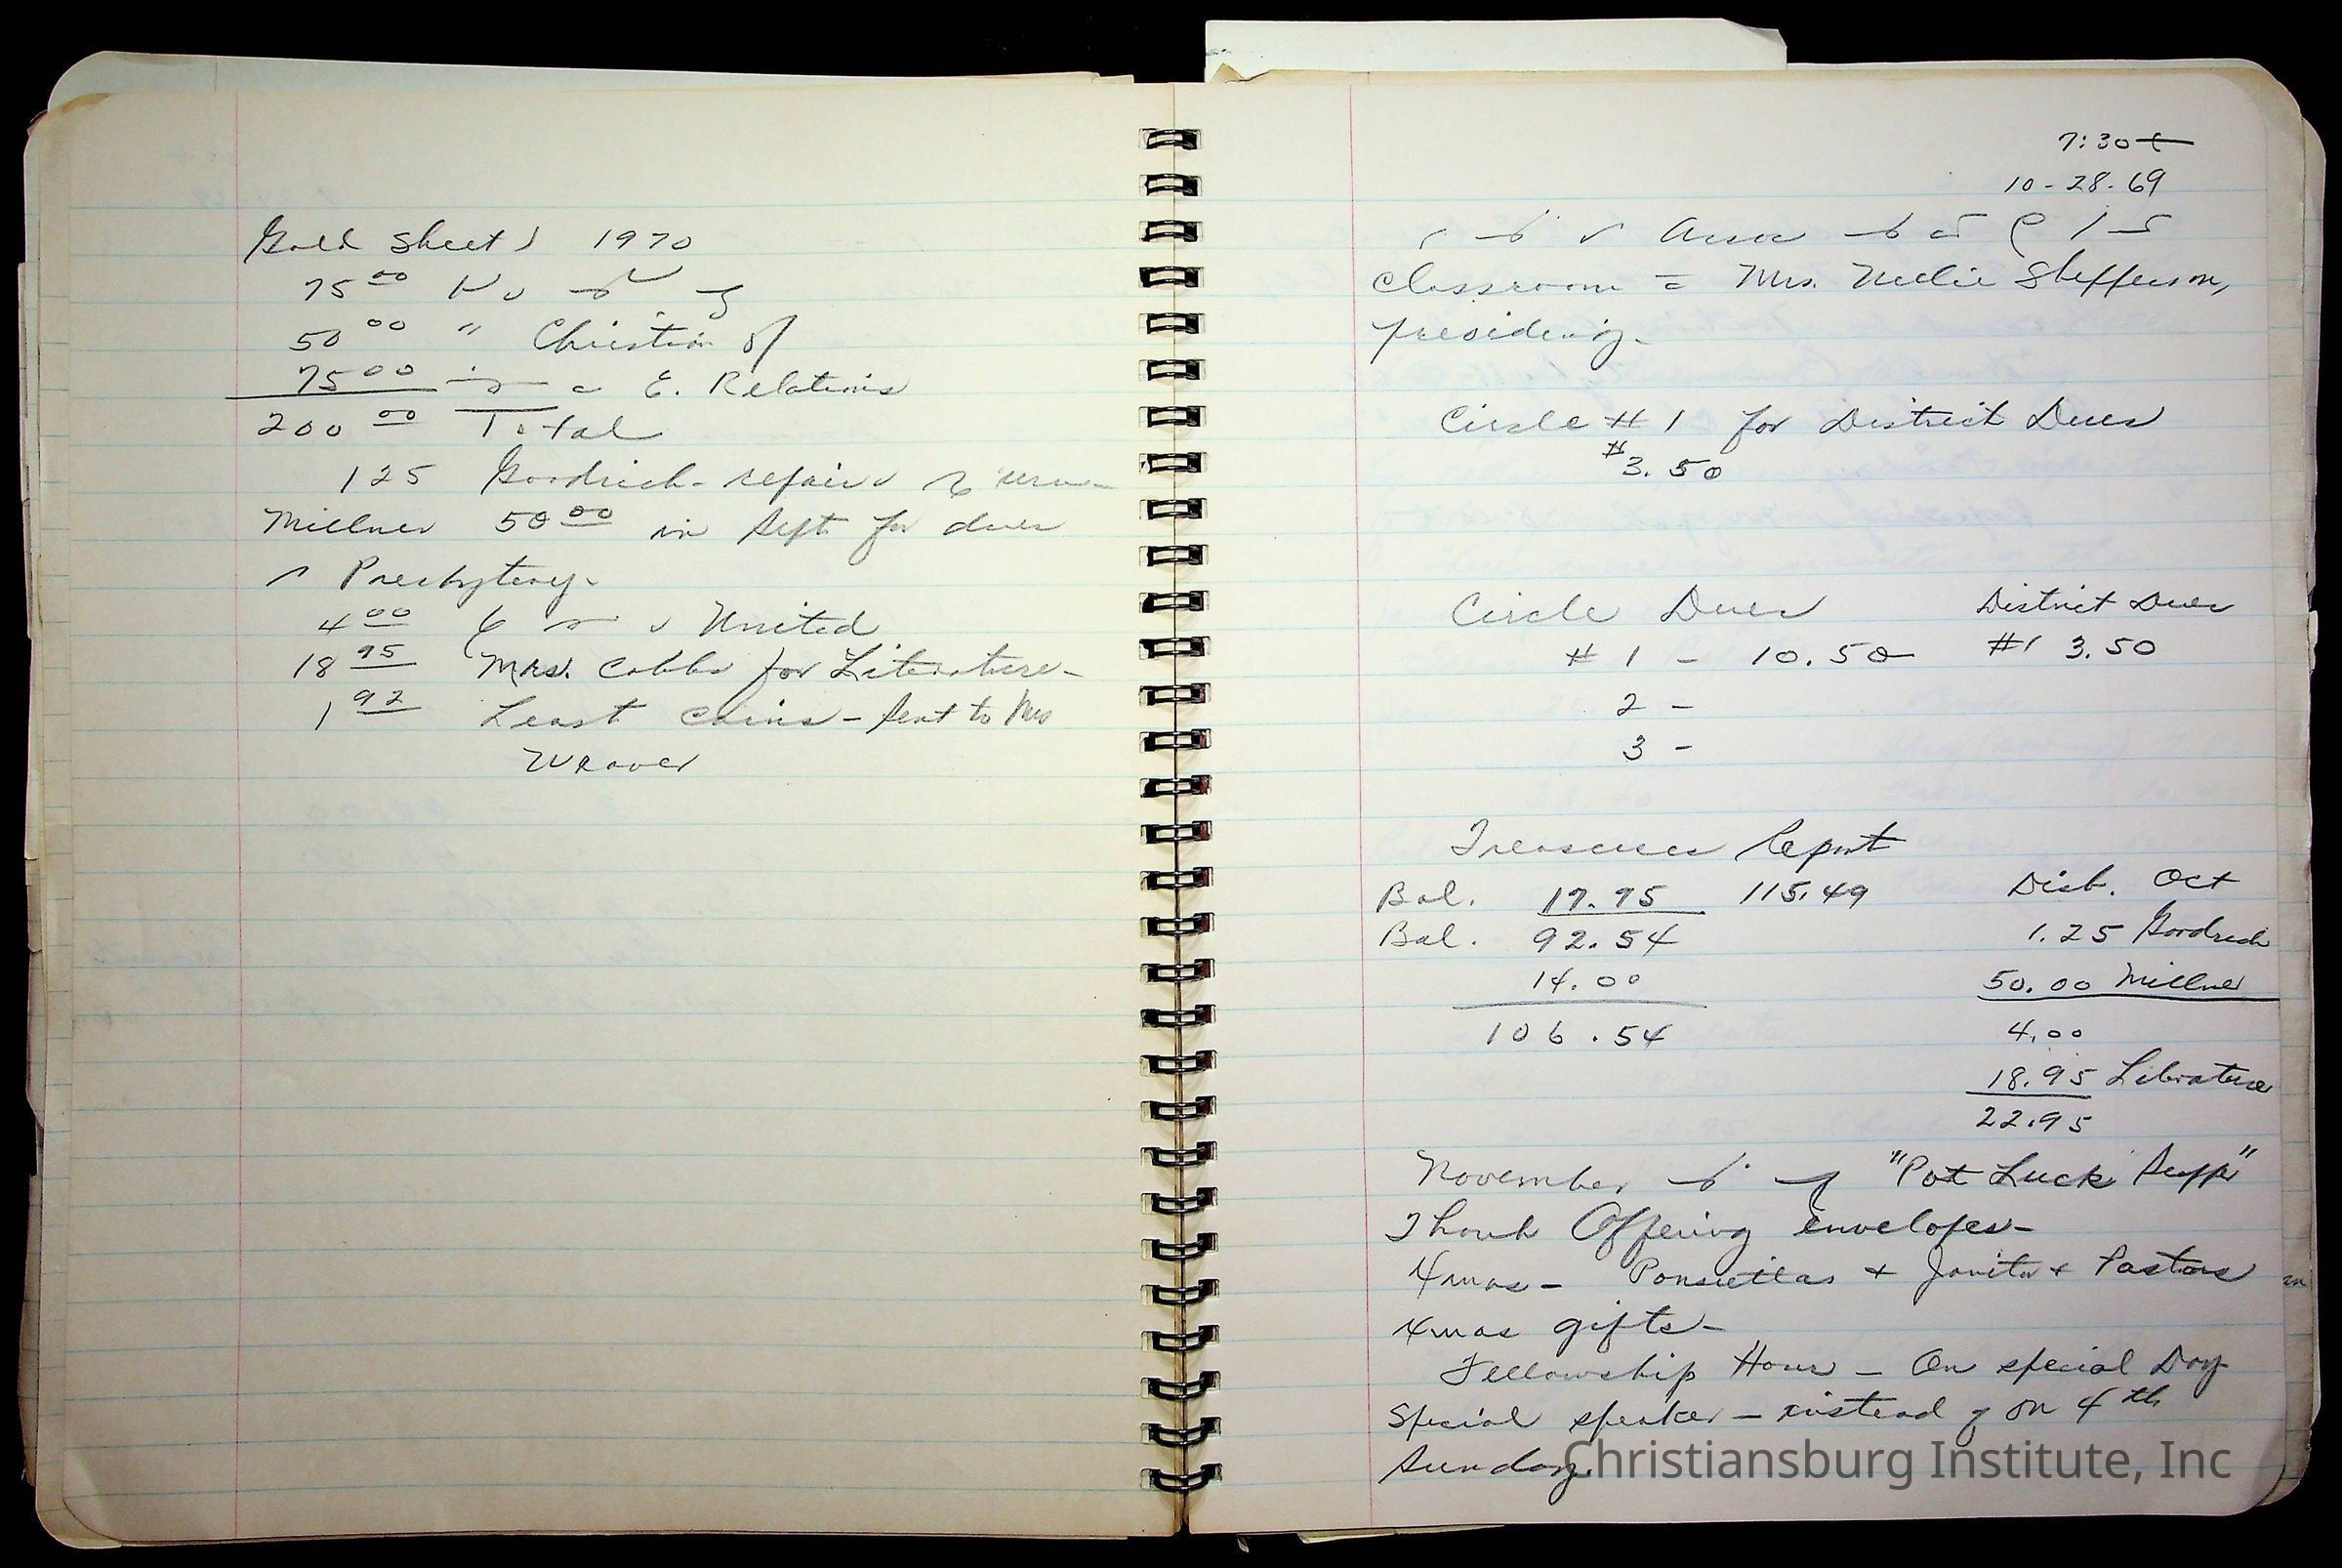 Gold Sheet 1970
75 00
50 00 " Christian of
75 00 E. Relations
200 00 Total
125 Goodrich - repair
Millner 50 00 in Sept for dues
Presbytery.
4 00 United
18 95 Mrs. Cobbs for Literature -
1 92 Least Coins - Sent to Mrs
Weaver
7:30
10-28-69
classroom = Mrs. Nelie Shefferson,
presiding.
Circle # 1 for District Dues
$3.50
Circle Dues District Dues
# 1 - 10.50 #1 3.50
2 -
3 -
Treasurer Report
Bal. 17.95 115.49 Disb. Oct
Bal. 92.54 1.25 Goodrich
14.00 50.00 Millner
106.54 4.00
18.95 Literature
22.95
November "Pot Luck Supper"
Thank Offering envelopes -
Xmas - Ponsettas + Janitor + Pastors
Xmas gifts -
Fellowship Hour - On special Day
Special speaker - instead of on 4th
Sunday.
Christiansburg Institute, Inc